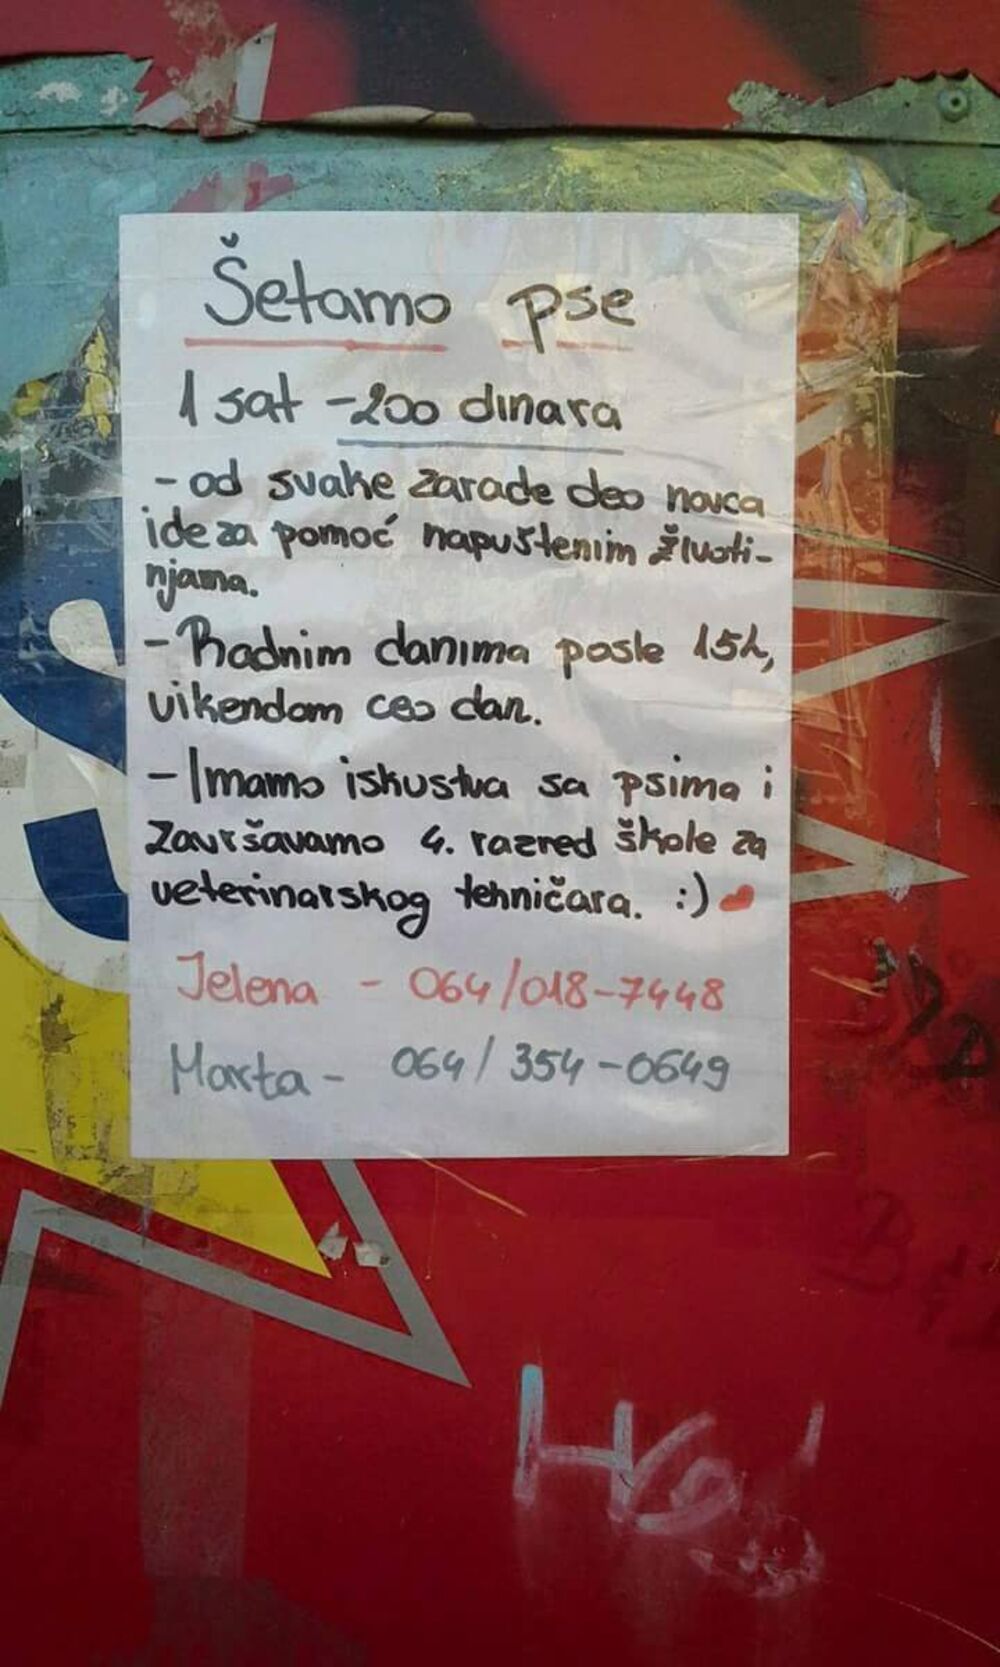 Šetamo pse
1 sat - 200 dinara
- od svake zarade deo novca
ide za pomoć napuštenim životi-
njama.
- Radnim danima posle 15h,
vikendom ceo dan.
- Imamo iskustva sa psima i
završavamo 4. razred škole za
veterinarskog tehničara. :) ❤
Jelena - 064/018-7448
Marta - 064/354-0649